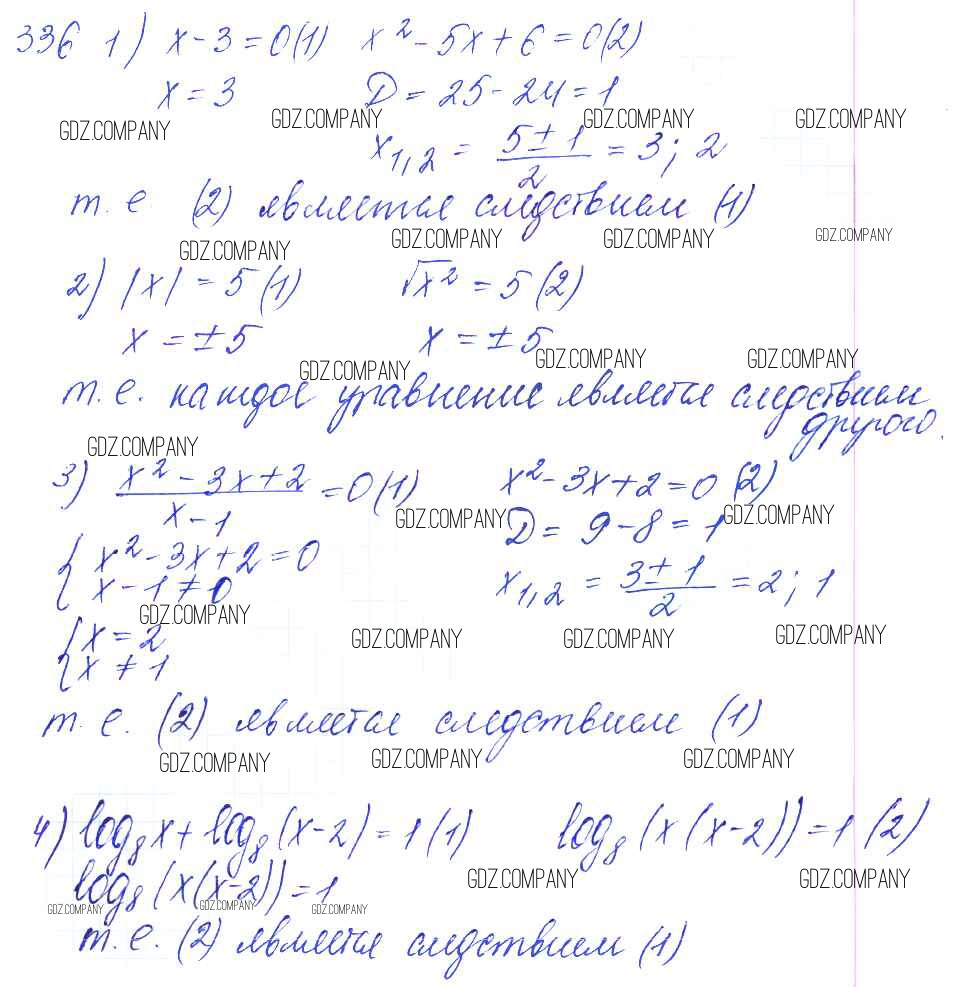 336 1) x-3=0(1) x²-5x+6=0(2)
x=3 D=25-24=1
GDZ.COMPANY GDZ.COMPANY GDZ.COMPANY GDZ.COMPANY
x₁,₂ = (5±1)/2 = 3; 2
т. е (2) является следствием (1)
GDZ.COMPANY GDZ.COMPANY GDZ.COMPANY GDZ.COMPANY
2) |x|=5(1) √x²=5(2)
x=±5 x=±5
GDZ.COMPANY GDZ.COMPANY GDZ.COMPANY
т. е. каждое уравнение является следствием
другого.
GDZ.COMPANY
3) (x²-3x+2)/(x-1)=0(1) x²-3x+2=0(2)
GDZ.COMPANY GDZ.COMPANY
D=9-8=1
{x²-3x+2=0
x-1≠0 x₁,₂ = (3±1)/2 = 2; 1
GDZ.COMPANY GDZ.COMPANY GDZ.COMPANY GDZ.COMPANY
{x=2
x≠1
т. е. (2) является следствием (1)
GDZ.COMPANY GDZ.COMPANY GDZ.COMPANY
4) log₈x+log₈(x-2)=1(1) log₈(x(x-2))=1(2)
log₈(x(x-2))=1
GDZ.COMPANY GDZ.COMPANY
GDZ.COMPANY GDZ.COMPANY GDZ.COMPANY
т. е. (2) является следствием (1)